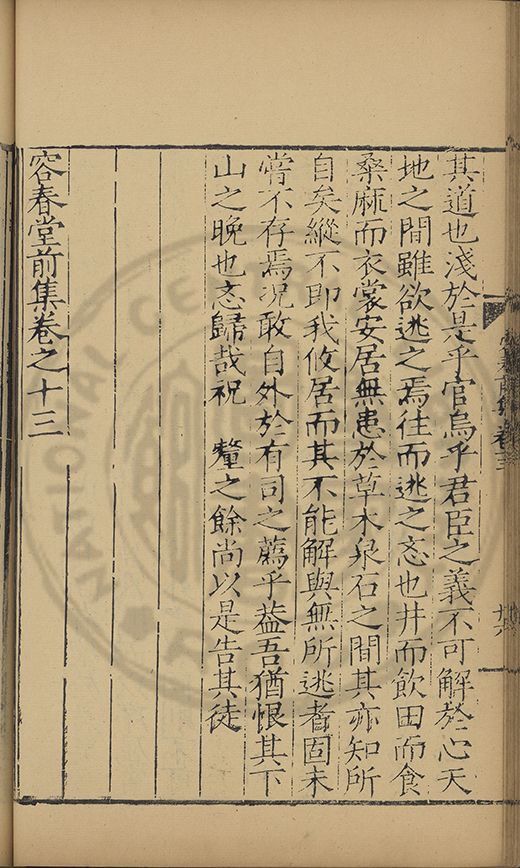 其道也淺於是乎官烏乎君臣之義不可解於心天
地之間雖欲逃之焉往而逃之忘也井而飲田而食
桑麻而衣裳安居無患於草木泉石之間其亦知所
自矣縱不即我攸居而其不能解與無所逃者固未
嘗不存焉况敢自外於有司之薦乎葢吾猶恨其下
山之晚也忘歸哉祝　釐之餘尚以是告其徒
容春堂前集卷之十三